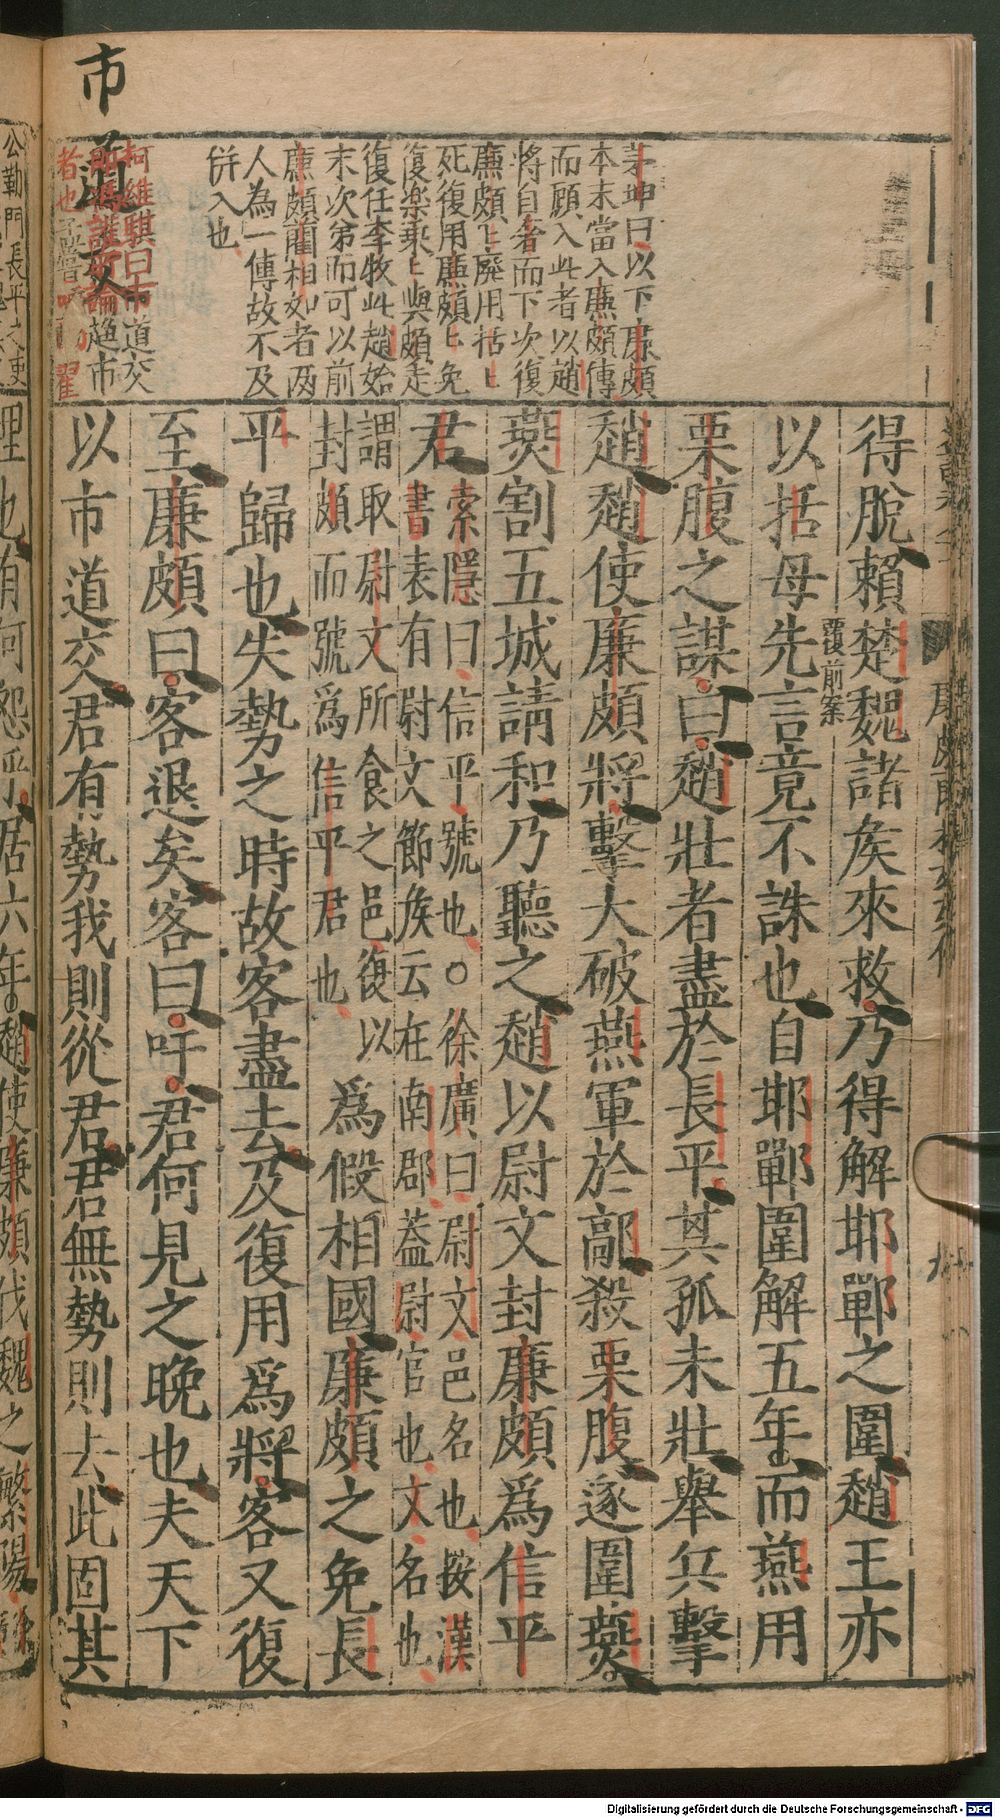 得脫賴楚魏諸矦來救乃得解邯鄲之圍趙王亦
以括母先言竟不誅也自邯鄲圍解五年而燕用
覆前案
栗腹之謀曰趙壯者盡於長平其孤未壯舉兵擊
趙趙使廉頗將擊大破燕軍於鄗殺栗腹遂圍燕
燕割五城請和乃聽之趙以尉文封廉頗爲信平
君索隱曰信平號也○徐廣曰尉文邑名也按漢
書表有尉文節矦云在南郡蓋尉官也文名也
謂取尉文所食之邑復以
封頗而號爲信平君也
爲假相國廉頗之免長
平歸也失勢之時故客盡去及復用爲將客又復
至廉頗曰客退矣客曰吁君何見之晚也夫天下
以市道交君有勢我則從君君無勢則去此固其
茅坤曰以下廉頗
本末當入廉頗傳
而顧入此者以趙
將自奢而下次復
廉頗上廢用括上
死復用廉頗上免
復樂乘上與頗走
復任李牧此趙始
末次第而可以前
廉頗藺相如者两
人為一傳故不及
併入也
柯維騏曰市道交
即馮諼所論趨市
者也
市道交
理也有何怨乎居六年趙使廉頗伐魏之繁陽
Digitalisierung gefördert durch die Deutsche Forschungsgemeinschaft - DFG